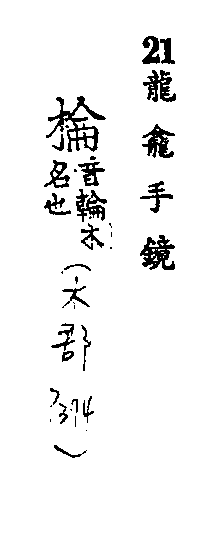 21龍龕手鏡
棆
音輪木
名也
(木部 374)